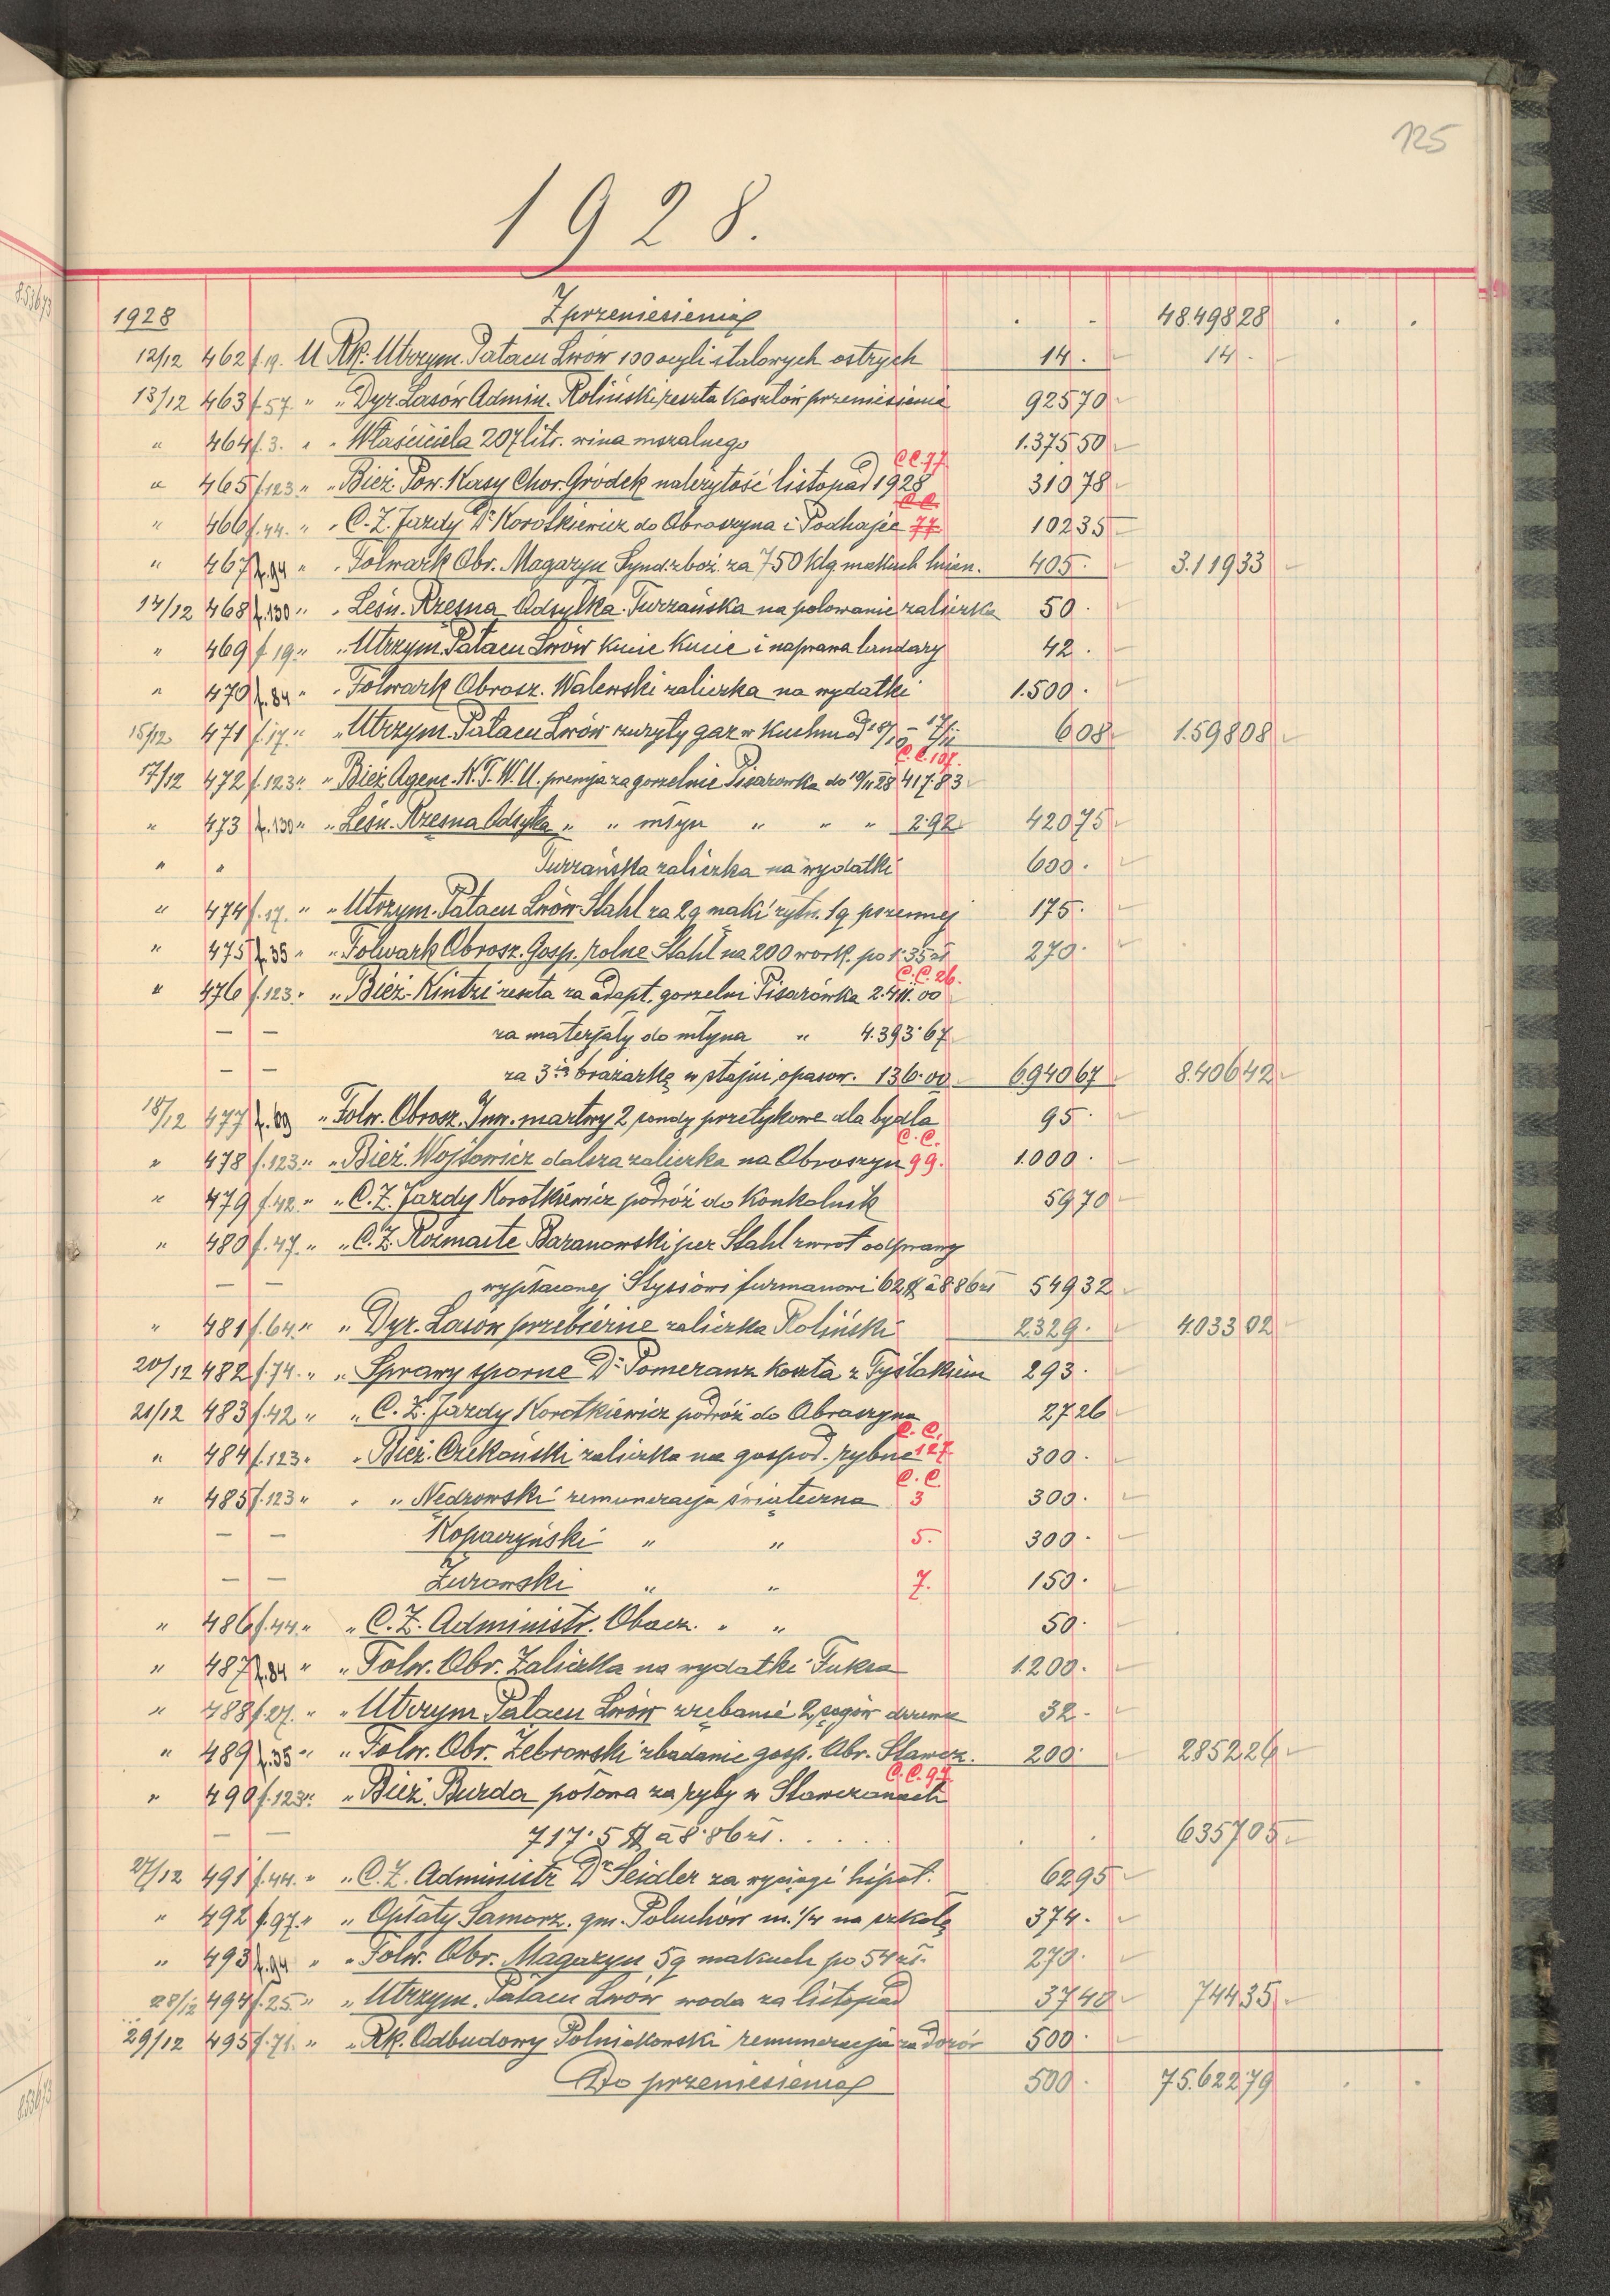 125
1928.
1928 Z przeniesienia . - 48.498 28 . .
12/12 462 f.19. U Rk. Utrzym. Pałacu Lwów 100 ocyli stalowych ostrych 14. 14.
13/12 463 f.57. " " Dyr. Lasów Admin. Roliński reszta kosztów przeniesienia 925 70
" 464 f.3. " " Właściciela 207 litr. wina mszalnego 1.375 50
C.C.77
" 465 f.123 " " Bież. Pow. Kasy Chor. Gródek należytość listopad 1928 310 78
C.C.
" 466 f.44. " " C. Z. Jazdy Dr Korotkiewicz do Obroszyna i Podhajce 77 102 35
" 467 f.94 " " Folwark Obr. Magazyn Synd. zboż. za 750 klg. makuch lnian. 405. 3.119 33
14/12 468 f.130 " " Leśn. Rzęsna Odsyłka Turzańska na polowanie zaliczka 50.
" 469 f.19 " " Utrzym. Pałacu Lwów kucie kucie i naprawa landary 42.
" 470 f.84 " " Folwark Obrosz. Walewski zaliczka na wydatki 1.500.
15/12 471 f.17. " " Utrzym. Pałacu Lwów zużyty gaz w kuchni od 18/10 - 17/11 6 08 1.598 08
C.C.107.
17/12 472 f.123 " " Bież. Agenc. N.T.W.U. premja za gorzelnię Pisarowka do 10/11 28 417.83
" 473 f.130 " " Leśn. Rzęsna Odsyłka " " młyn " " " 2.92 420 75
" " Turzańska zaliczka na wydatki 600.
" 474 f.17. " " Utrzym. Pałacu Lwów Stahl za 2q mąki żytn. 1q pszennej 175.
" 475 f.35 " " Folwark Obrosz. Gosp. rolne Stahl na 200 work. po 1.35 zł 270.
C.C.26.
" 476 f.123. " " Bież. Kintzi reszta za adapt. gorzelni Pisarówka 2.411.00
— — za materjały do młyna " 4.393.67
— — za 3cią brażarkę w stajni opasow. 136.00 6.940 67 8.406 42
18/12 477 f.69 " Folw. Obrosz. Inw. martwy 2 sondy przetykowe dla bydła 95.
C.C.
" 478 f.123. " " Bież. Wojtowicz dalsza zaliczka na Obroszyn 99. 1.000.
" 479 f.42. " " C. Z. Jazdy Korotkiewicz podróż do Konkolnik 59 70
" 480 f.47. " " C. Z. Rozmaite Baranowski per Stahl zwrot odprawy
— — wypłaconej Stysiowi furmanowi 62 $ à 8.86 zł 549 32
" 481 f.64. " " Dyr. Lasów przebierne zaliczka Roliński 2329. 4.033 02
20/12 482 f.74. " " Sprawy sporne Dr Pomeranz koszta z Tyślakiem 293.
21/12 483 f.42 " " C. Z. Jazdy Korotkiewicz podróż do Obroszyna 27 26
C.C.
" 484 f.123 " " Bież. Czekoński zaliczka na gospod. rybne 127. 300.
C.C.
" 485 f.123 " " " Nedzowski remuneracja świąteczna 3 300.
— — Kopaczyński " " 5. 300.
— — Żurowski " " 7. 150.
" 486 f.44. " " C. Z. Administr. Obacz. " " 50.
" 487 f.84 " " Folw. Obr. Zaliczka na wydatki Fuksa 1.200.
" 488 f.27. " " Utrzym Pałacu Lwów zrębanie 2 sągów drzewa 32.
" 489 f.35 " " Folw. Obr. Żebrowski zbadanie gosp. Obr. Stawcz. 200. 2852 26
C.C.97.
" 490 f.123. " " Bież. Burda połowa za ryby w Stawczanach
— — 717.5 $ à 8.86 zł. . . . . . . 6357 05
27/12 491 f.44. " " C. Z. Administr Dr Seidler za wyciągi hipot. 62 95
" 492 f.97. " " Opłaty Samorz. gm. Poluchów m. 1/4 na szkołę 374.
" 493 f.94 " " Folw. Obr. Magazyn 5q makuch po 54 zł. 270.
28/12 494 f.25. " " Utrzym. Pałacu Lwów woda za listopad 37 40 744 35
29/12 495 f.71. " " Rk. Odbudowy Polniakowski remuneracja za dozór 500.
Do przeniesienia 500. 75.622 79 . .